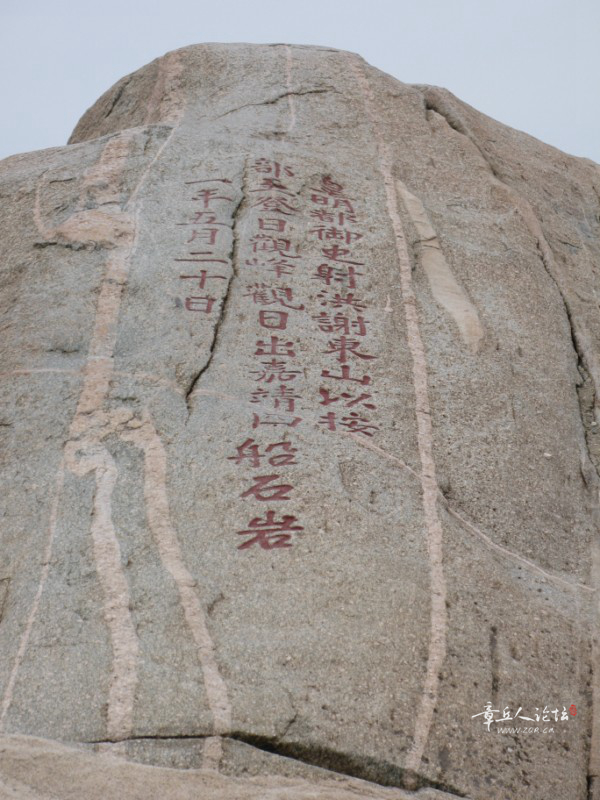 皇明都御史射洪謝東山以按
部又登日觀峰觀日出嘉靖四
一年五月二十日
船石岩
章丘人论坛
www.zqr.cn